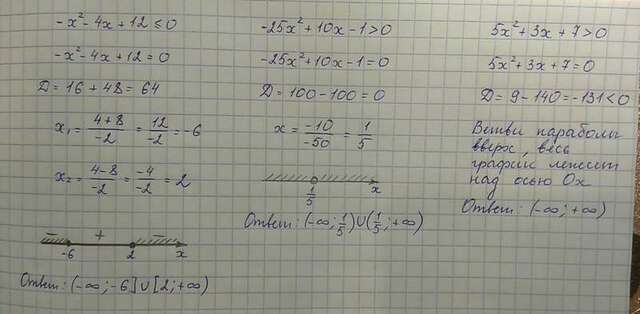 -x²-4x+12≤0
-x²-4x+12=0
D=16+48=64
x₁=(4+8)/(-2)=12/(-2)=-6
x₂=(4-8)/(-2)=(-4)/(-2)=2
- + -
-6 2 x
Ответ: (-∞;-6]∪[2;+∞)
-25x²+10x-1>0
-25x²+10x-1=0
D=100-100=0
x=(-10)/(-50)=1/5
1/5 x
Ответ: (-∞;1/5)∪(1/5;+∞)
5x²+3x+7>0
5x²+3x+7=0
D=9-140=-131<0
Ветви параболы
вверх, весь
график лежит
над осью Ox
Ответ: (-∞;+∞)